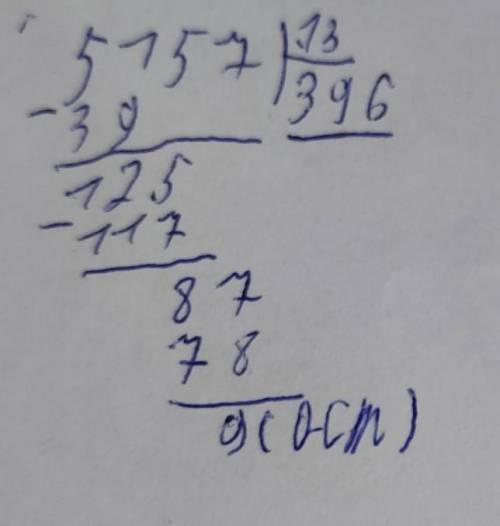 5157 | 13
- 39 396
125
- 117
87
78
9 (ост)